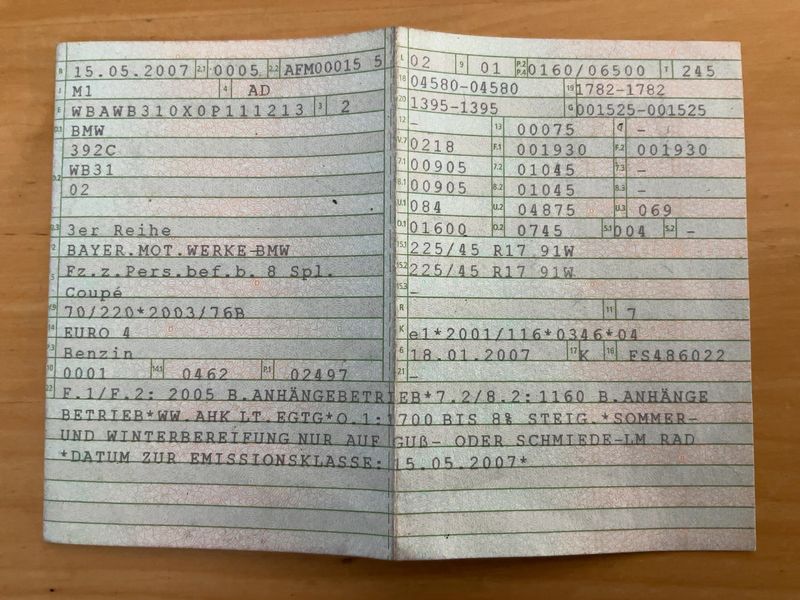 B 15.05.2007 2.1 0005 2.2 AFM00015 5
J M1 4 AD
E WBAWB310X0P111213 3 2
D.1 BMW
392C
D.2 WB31
02
D.3 3er Reihe
2 BAYER.MOT.WERKE-BMW
5 Fz.z.Pers.bef.b. 8 Spl.
Coupé
V.9 70/220*2003/76B
14 EURO 4
P.3 Benzin
10 0001 14.1 0462 P.1 02497
L 02 9 01 P.2 P.4 0160/06500 T 245
18 04580-04580 19 1782-1782
20 1395-1395 G 001525-001525
12 - 13 00075 Q -
V.7 0218 F.1 001930 F.2 001930
7.1 00905 7.2 01045 7.3 -
8.1 00905 8.2 01045 8.3 -
U.1 084 U.2 04875 U.3 069
O.1 01600 O.2 0745 S.1 004 S.2 -
15.1 225/45 R17 91W
15.2 225/45 R17 91W
15.3 -
R 11 7
K e1*2001/116*0346*04
6 18.01.2007 17 K 16 FS486022
21 -
22 F.1/F.2: 2005 B.ANHÄNGEBETRIEB*7.2/8.2:1160 B.ANHÄNGE
BETRIEB*WW.AHK LT.EGTG*O.1:1700 BIS 8% STEIG.*SOMMER-
UND WINTERBEREIFUNG NUR AUF GUß- ODER SCHMIEDE-LM RAD
*DATUM ZUR EMISSIONSKLASSE: 15.05.2007*